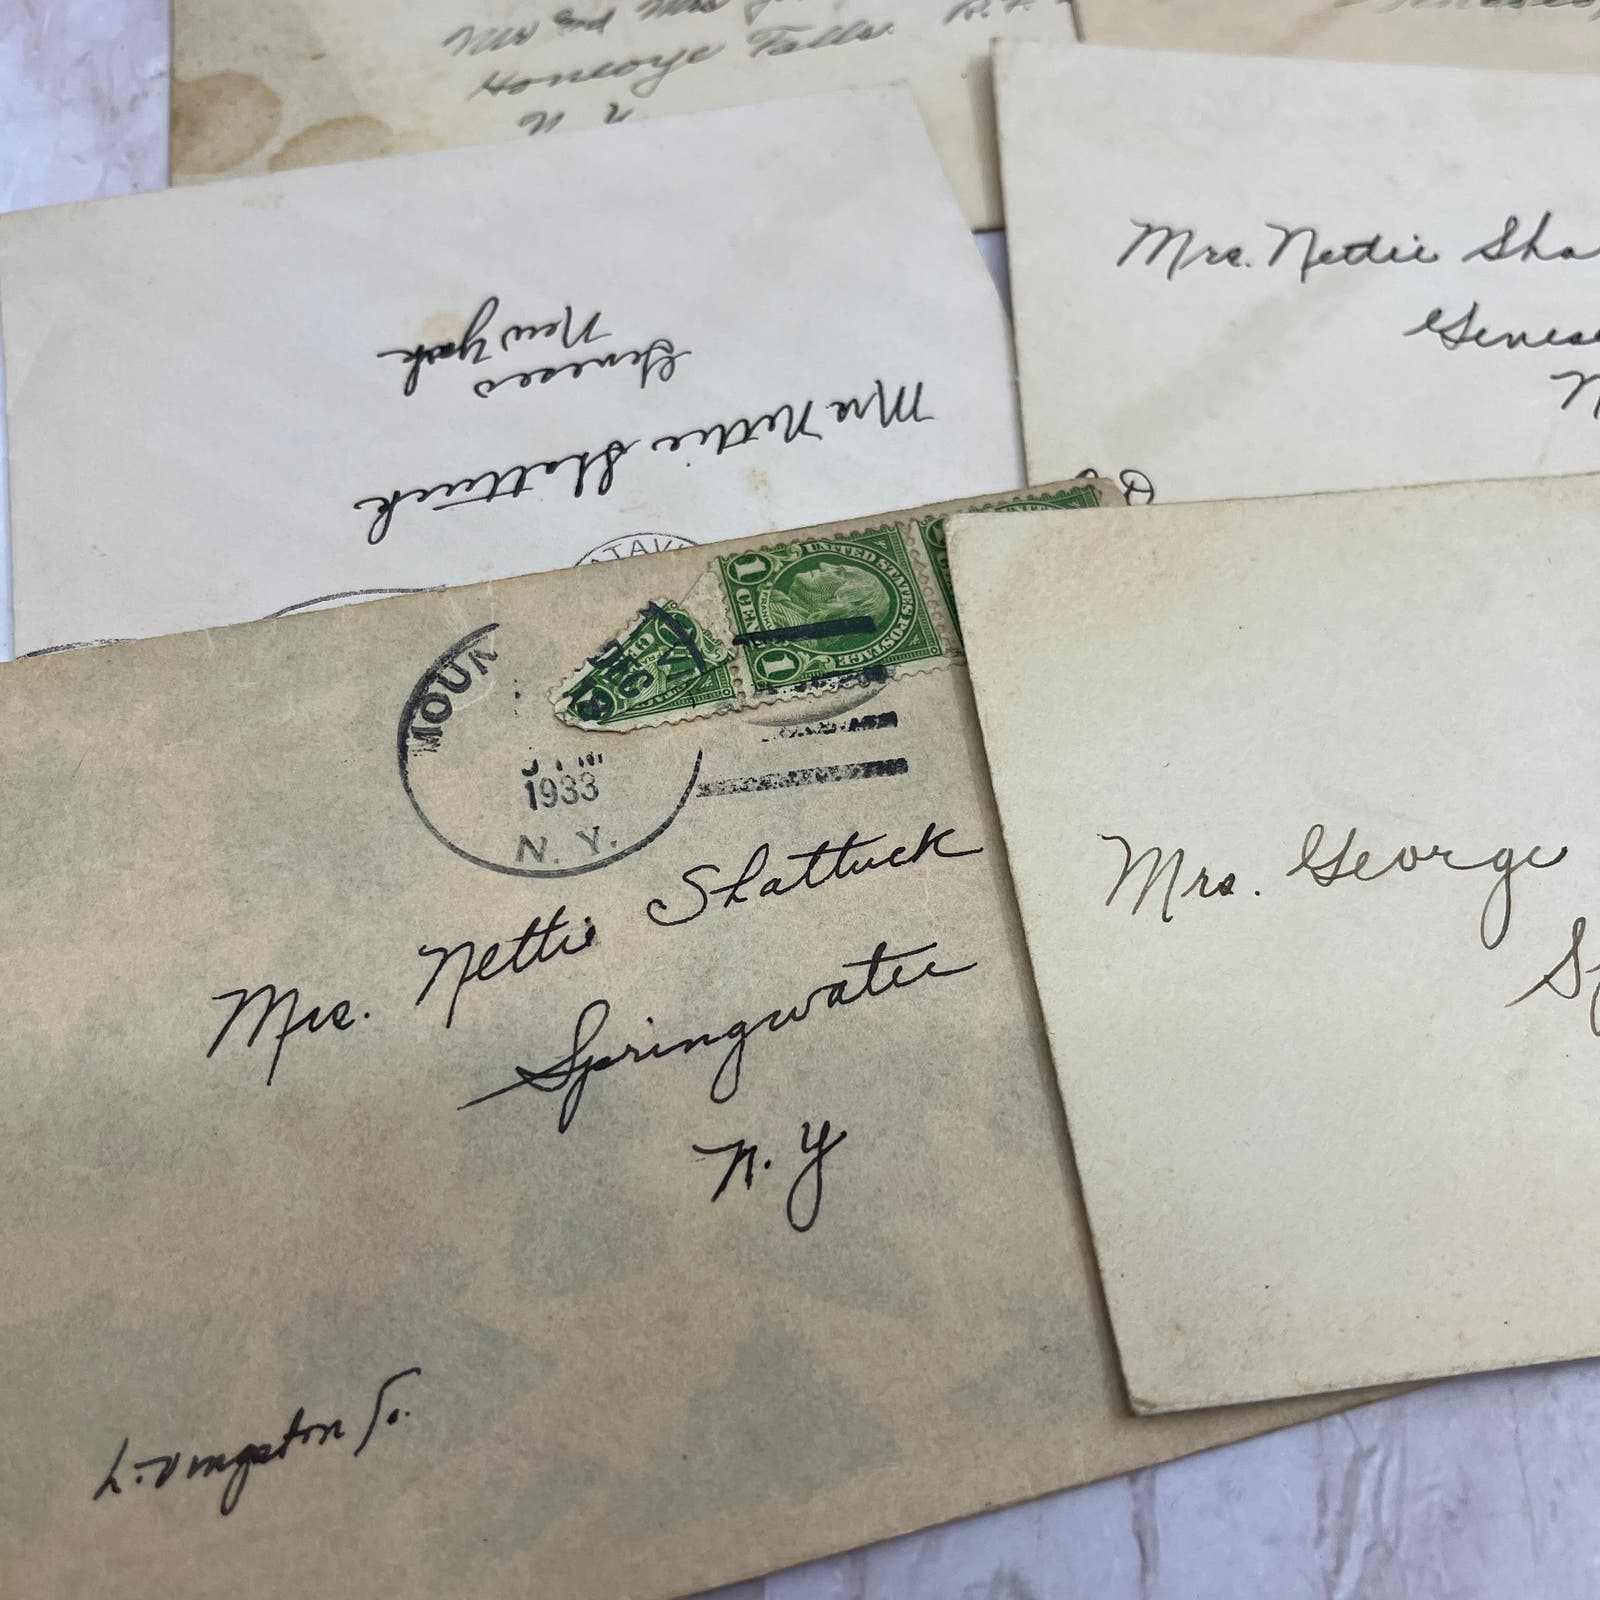 Mr and Mrs
Honeoye Falls.
N Y
Mrs. Nettie Sha
Genese
N
Mrs Nettie Shattuck
Geneseo
New York
MOUN
DEC
1933
N. Y.
1 UNITED STATES POSTAGE 1
Mrs. Nettie Shattuck
Springwater
N. Y
Livingston Co.
Mrs. George
Sp